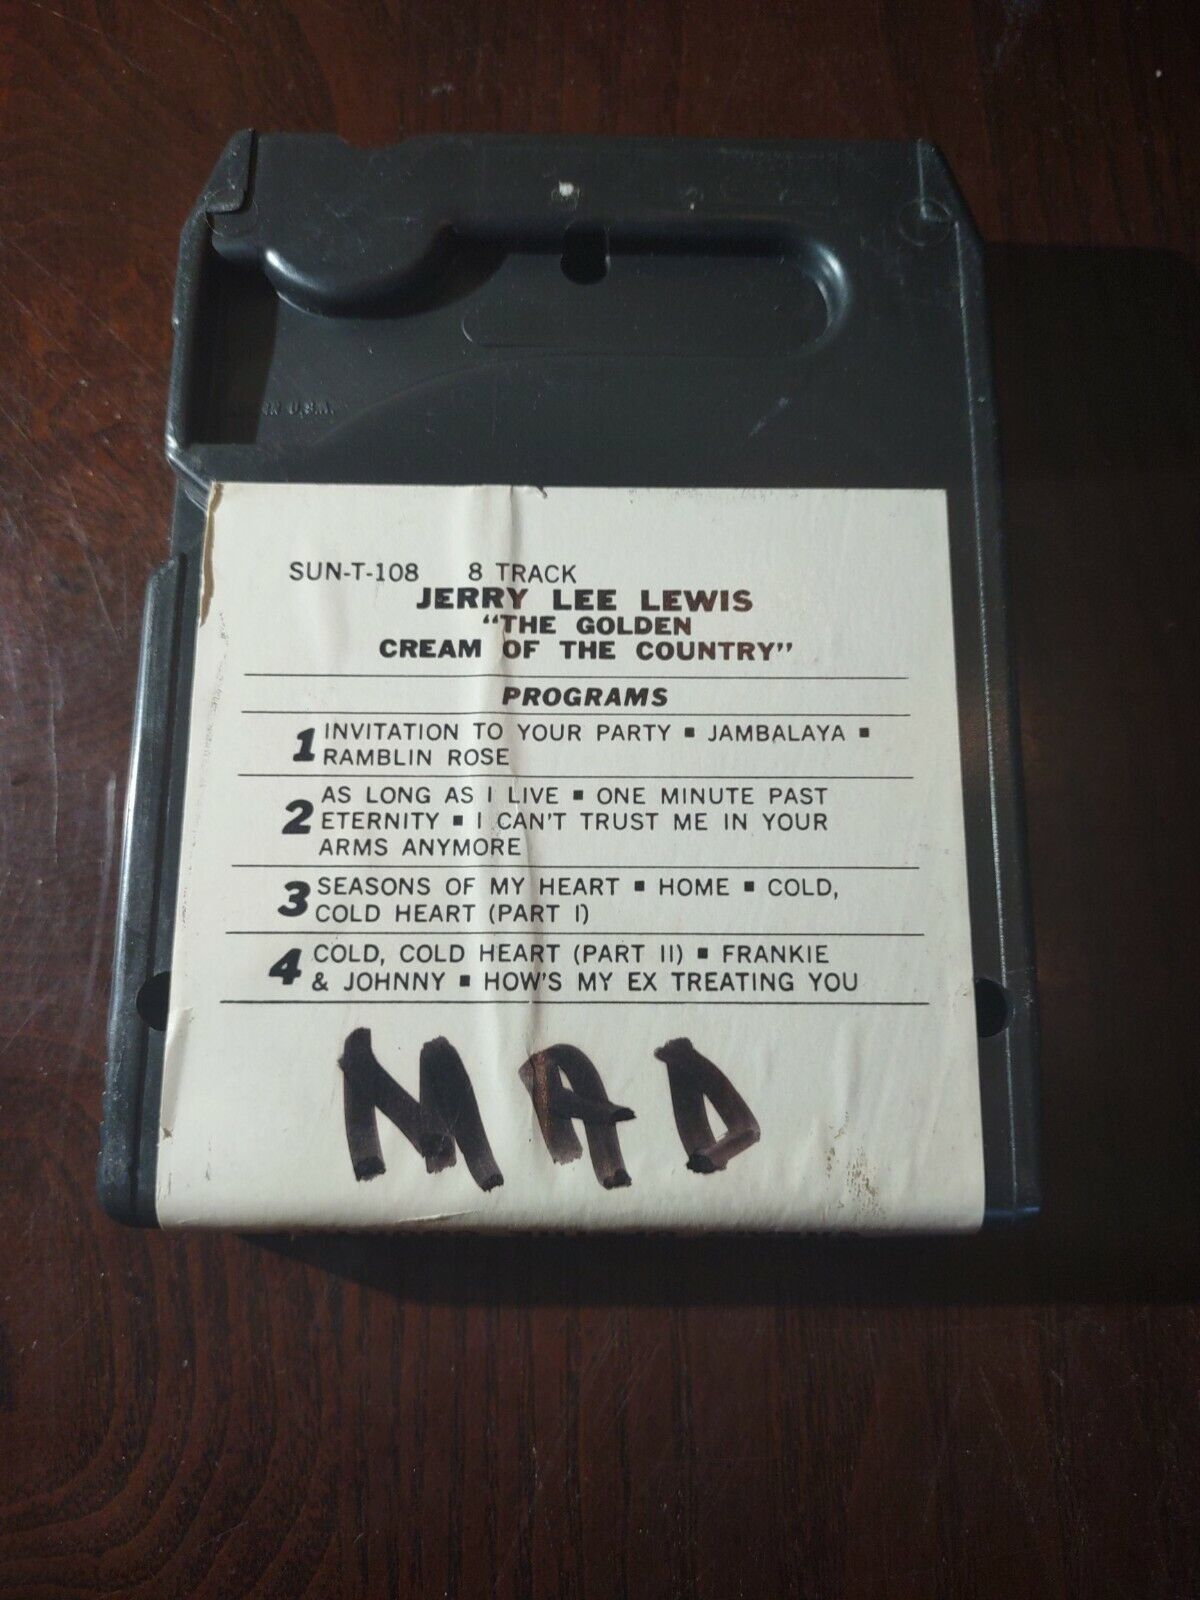 IN U.S.A.
SUN-T-108 8 TRACK
JERRY LEE LEWIS
"THE GOLDEN
CREAM OF THE COUNTRY"
PROGRAMS
1 INVITATION TO YOUR PARTY ▪ JAMBALAYA ▪
RAMBLIN ROSE
2 AS LONG AS I LIVE ▪ ONE MINUTE PAST
ETERNITY ▪ I CAN'T TRUST ME IN YOUR
ARMS ANYMORE
3 SEASONS OF MY HEART ▪ HOME ▪ COLD,
COLD HEART (PART I)
4 COLD, COLD HEART (PART II) ▪ FRANKIE
& JOHNNY ▪ HOW'S MY EX TREATING YOU
MAD